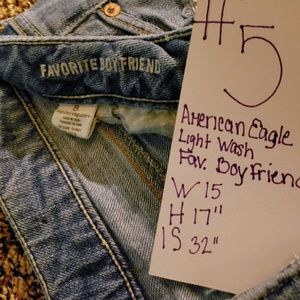 FAVORITE BOYFRIEND
8
#5
American Eagle
Light Wash
Fav. Boyfriend
W 15
H 17"
IS 32"